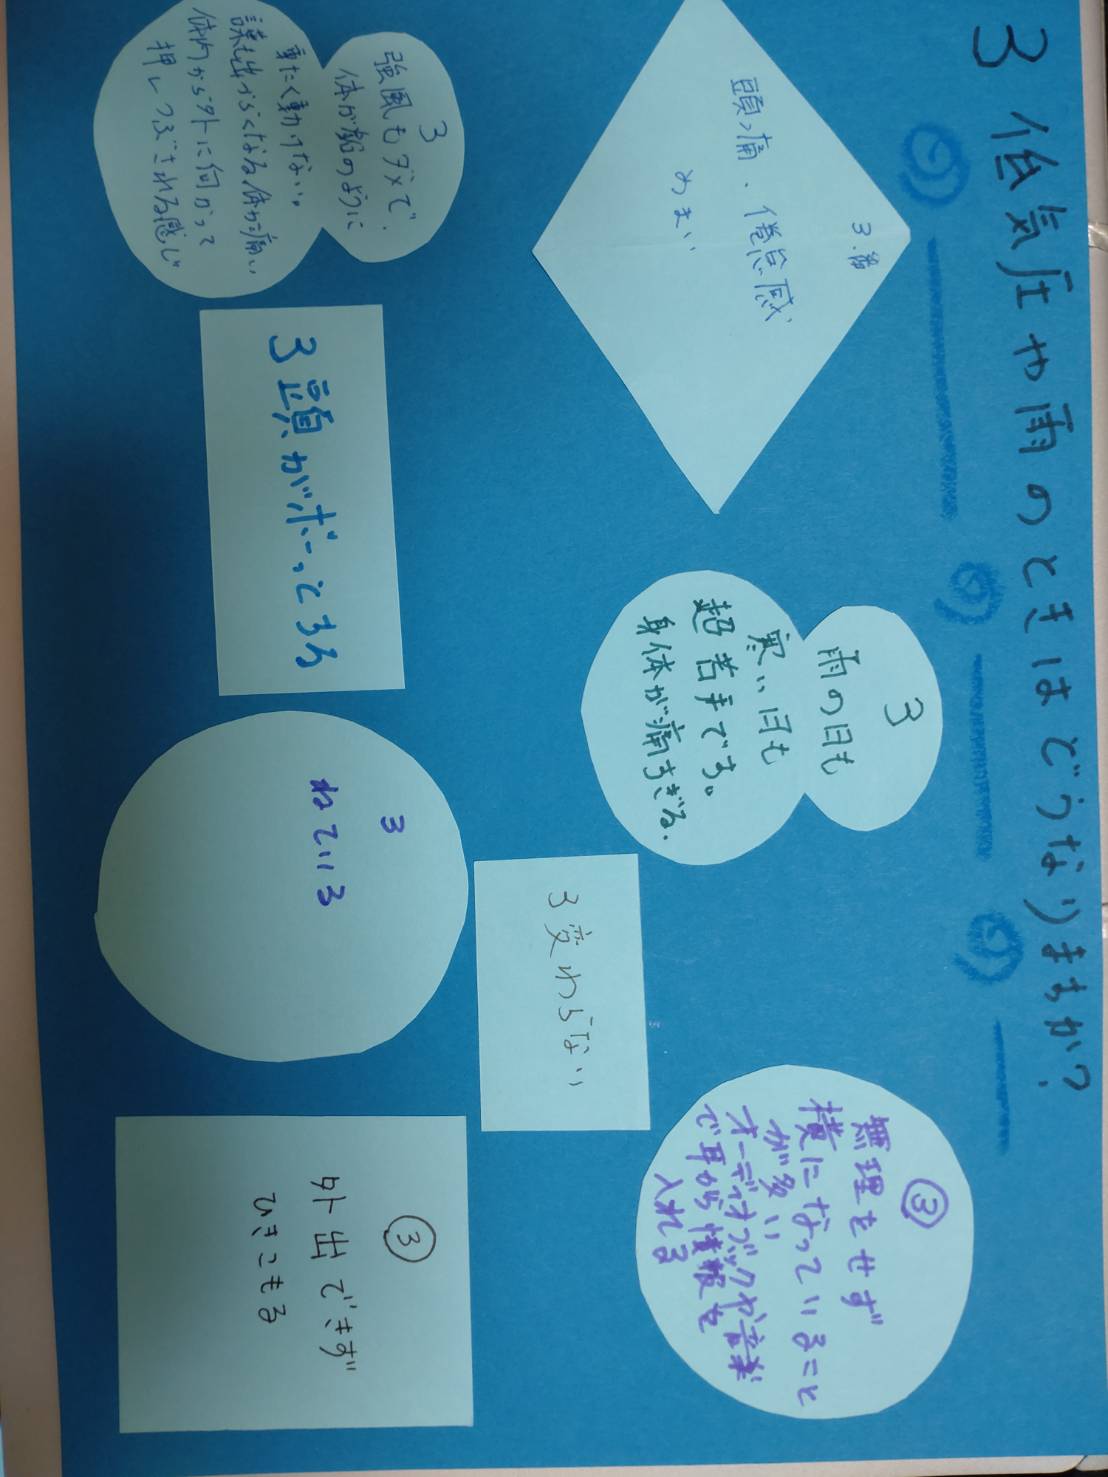 3 低気圧や雨のときはどうなりますか?
3.
頭痛・倦怠感
めまい
3
強風もダメで、
体が鉛のように
重たく動けない。
体が痛い
体内から外に向かって
押しつぶされる感じ
3 頭がボーっとする
3
雨の日も
寒い日も
超苦手です。
身体が痛すぎる.
3
ねている
3 変わらない
③
無理をせず
横になっていること
が多い
オーディオブックや音楽
で耳から情報を
入れる
③
外出できず
ひきこもる